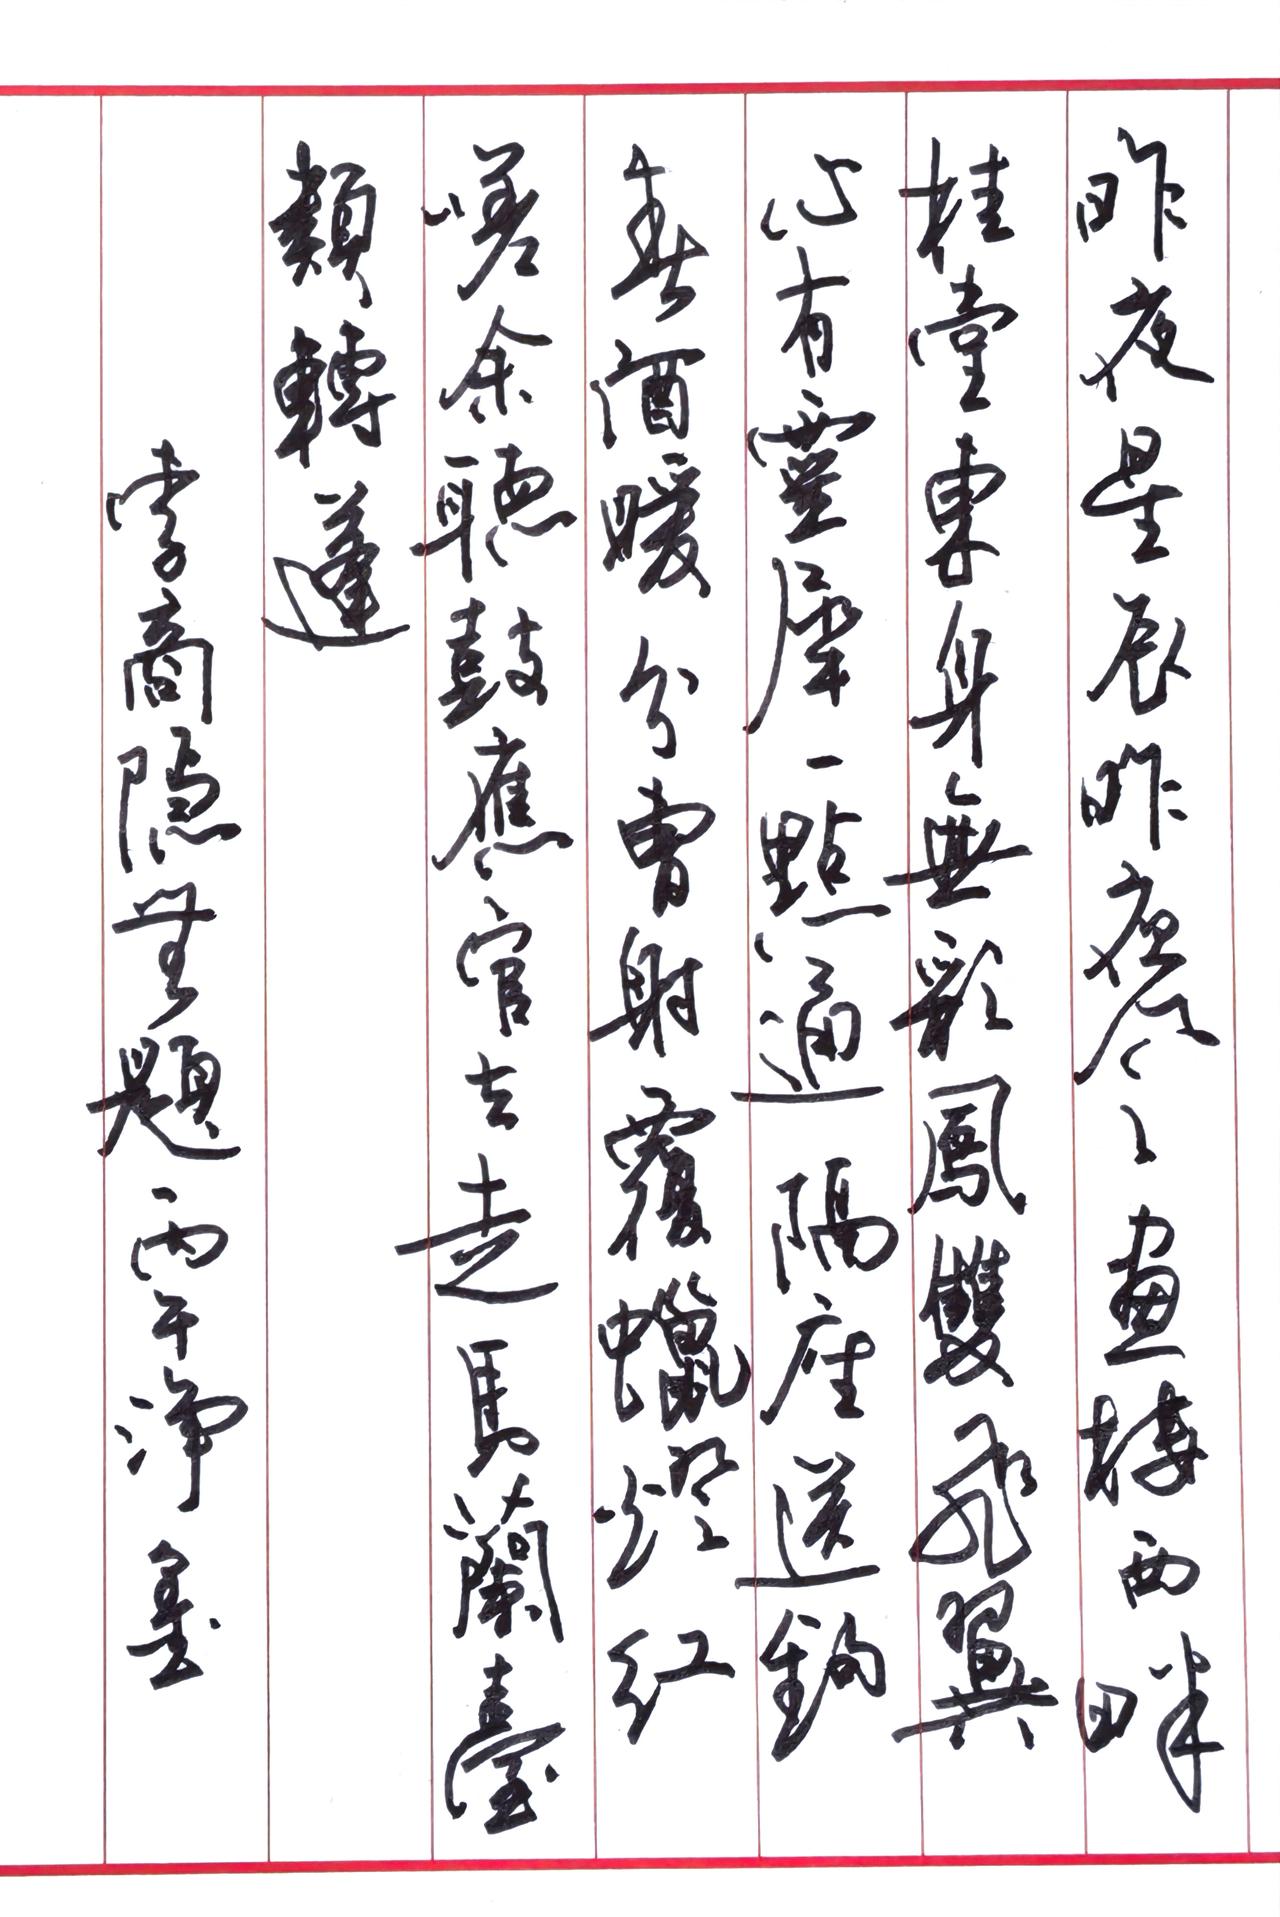 昨夜星辰昨夜風畫樓西畔
桂堂東身無彩鳳雙飛翼
心有靈犀一點通隔座送鉤
春酒暖分曹射覆蠟燈紅
嗟余聽鼓應官去走馬蘭臺
類轉蓬
李商隱無題丙午淨墨